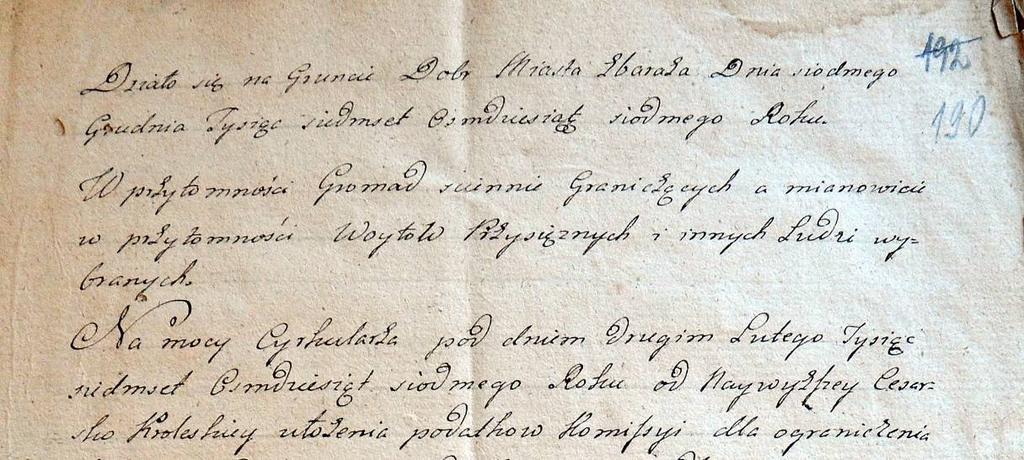 192
Działo się na Gruncie Dobr Miasta Zbaraża Dnia siodmego
190
Grudnia Tysiąc siedmset Osmdziesiąt siodmego Roku.
W przytomności Gromad sciennie Graniczących a mianowicie
w przytomności Woytow Przysięznych i innych Ludzi wy=
branych.
Na mocy Cyrkularza pod dniem drugim Lutego Tysiąc
siedmset Osmdziesiąt siodmego Roku od Naywyższey Cesar=
sko Kroleskiey ułożenia podatkow Komissyi dla ograniczenia